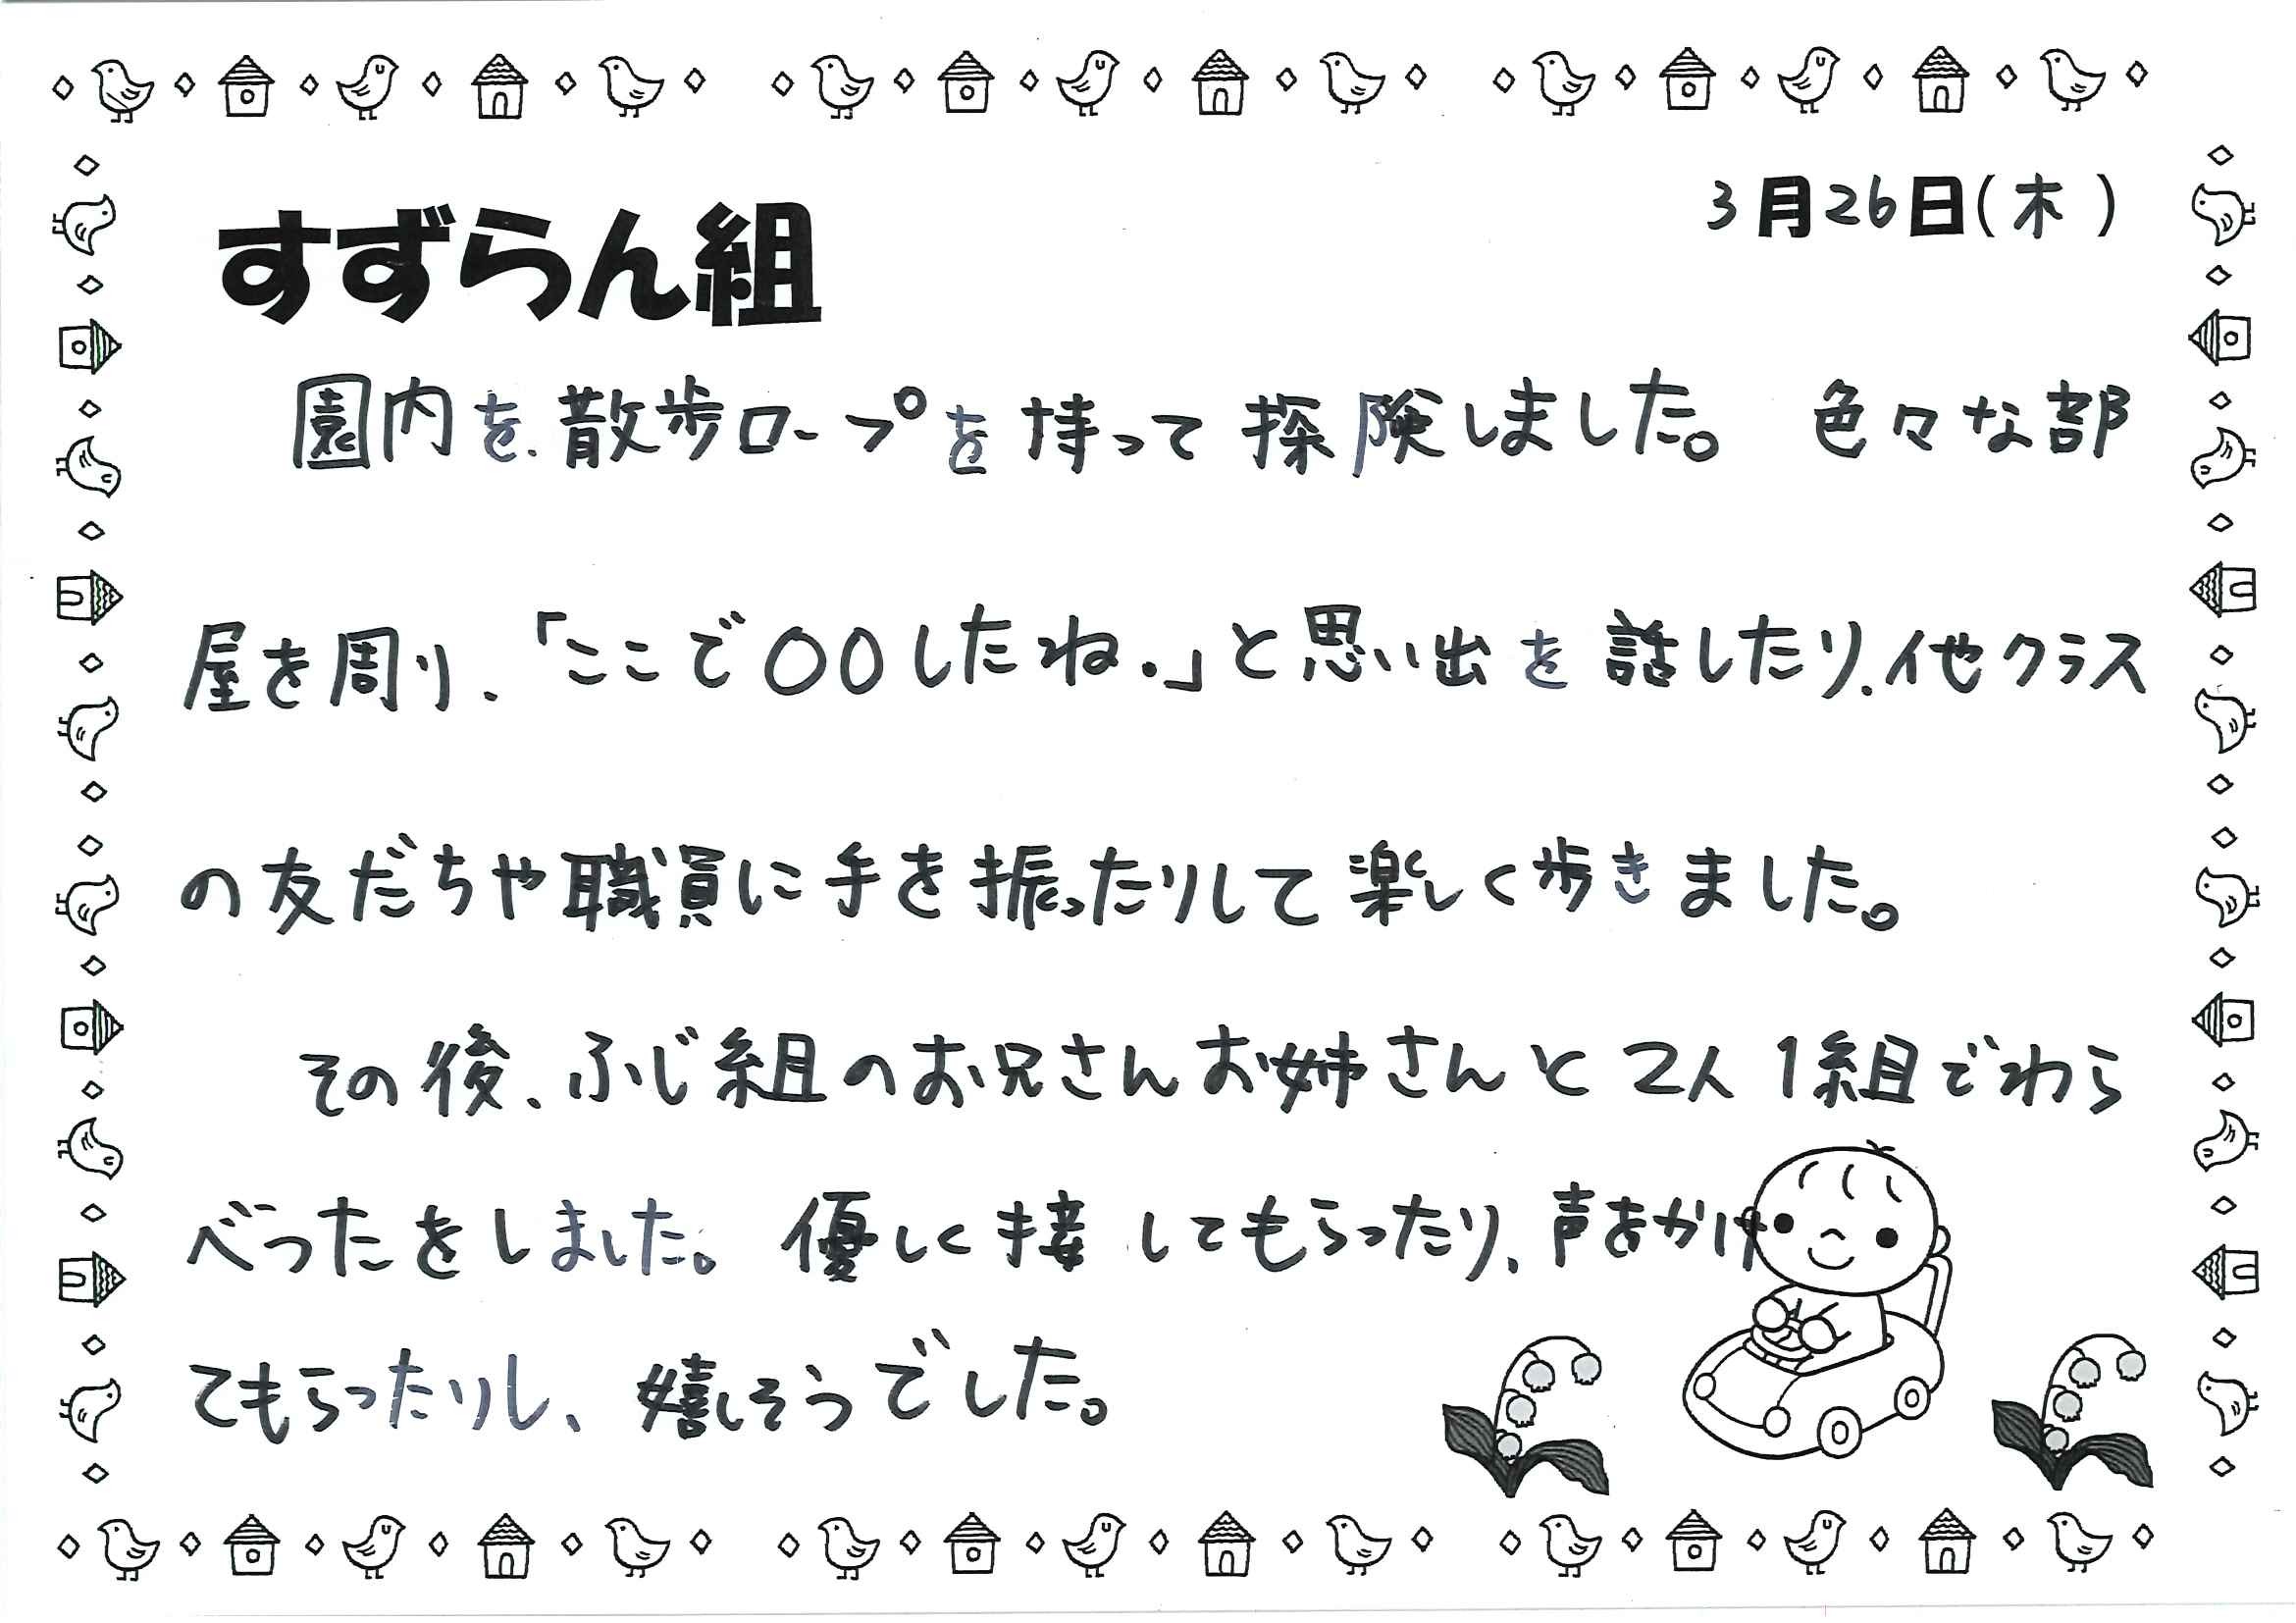 3月26日(木)
すずらん組
園内を、散歩ロープを持って探険しました。色々な部
屋を周り、「ここで〇〇したね。」と思い出を話したり、他クラス
の友だちや職員に手を振ったりして楽しく歩きました。
その後、ふじ組のお兄さんお姉さんと2人1組でわら
べうたをしました。優しく接してもらったり、声をかけ
てもらったりし、嬉しそうでした。